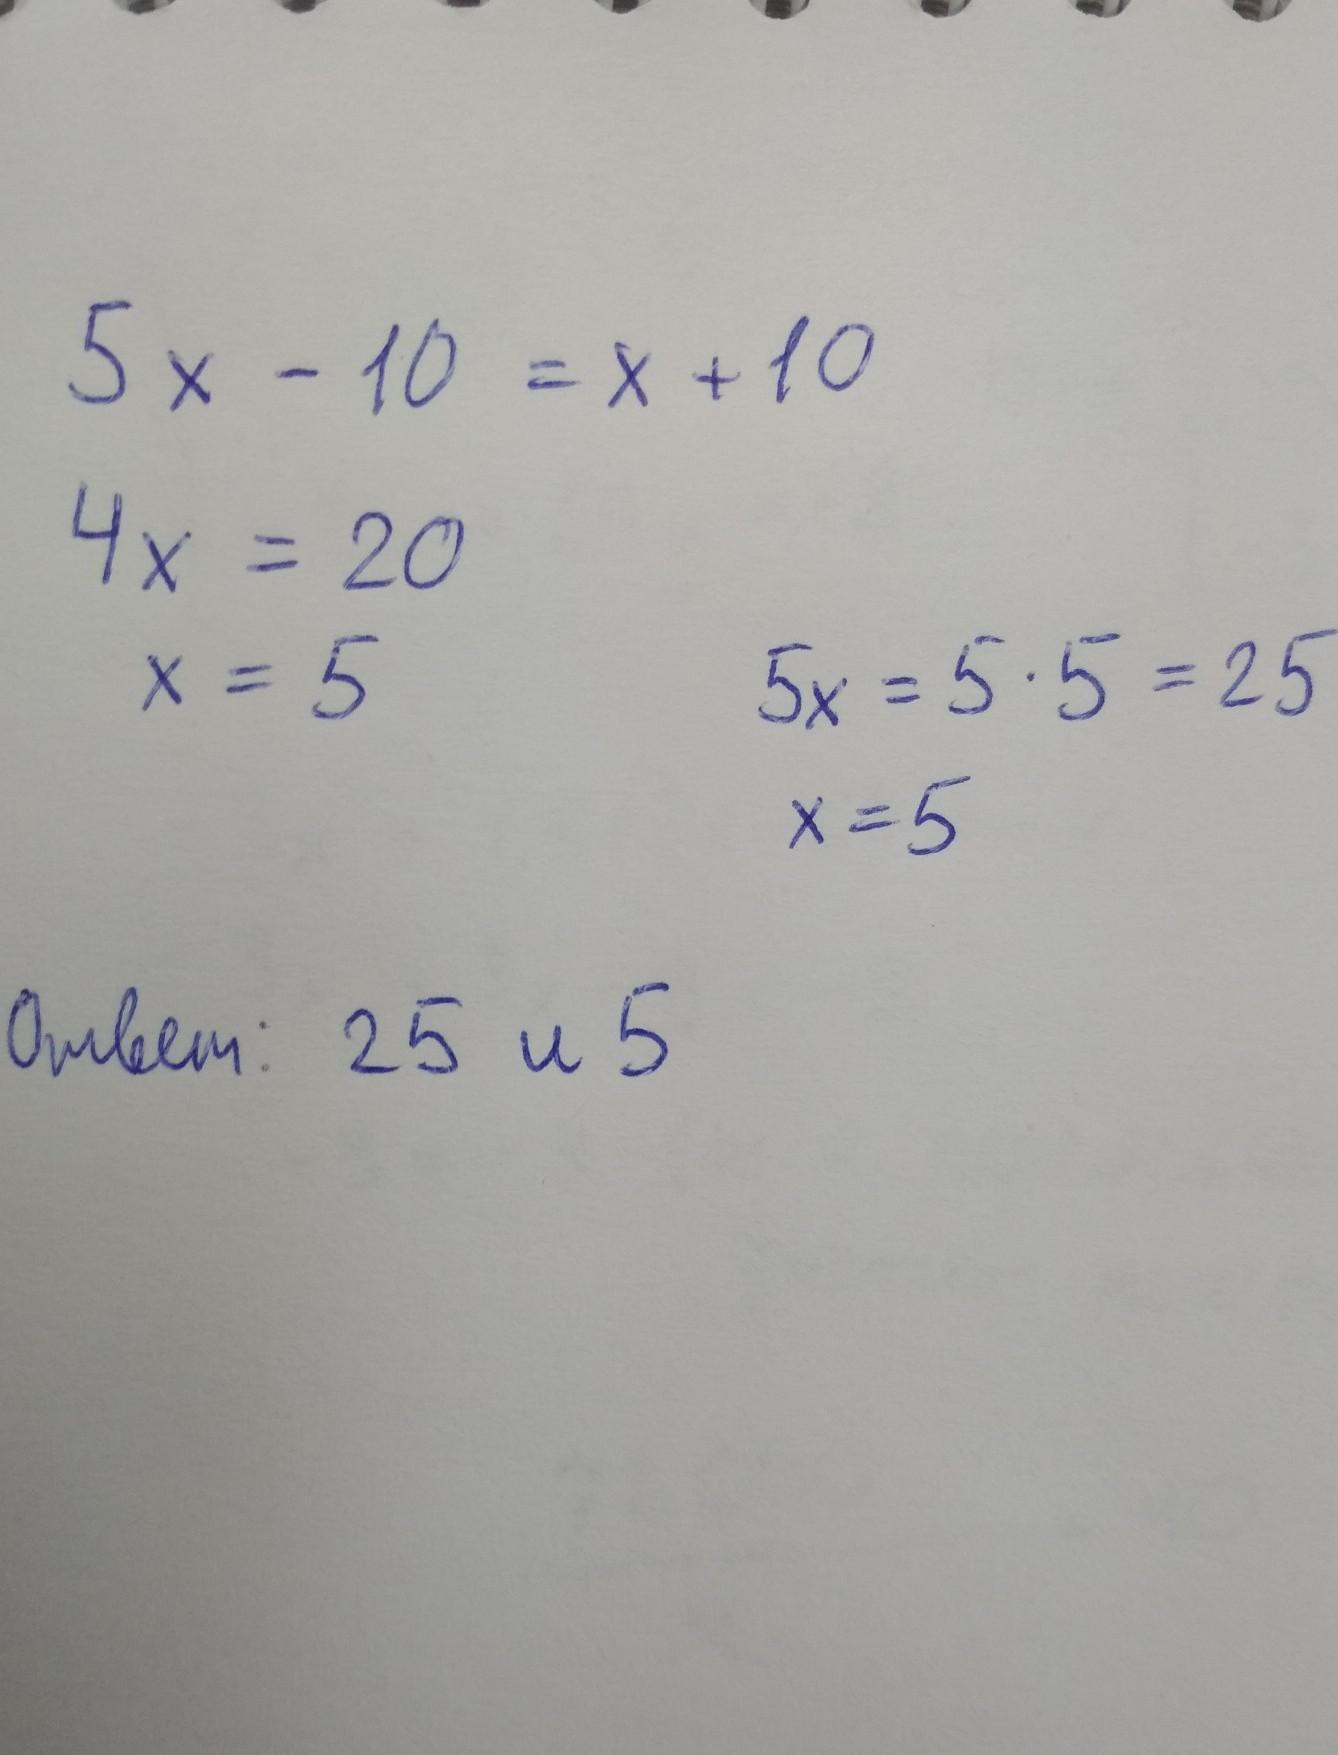 5x - 10 = x + 10
4x = 20
x = 5
5x = 5 · 5 = 25
x = 5
Ответ: 25 и 5